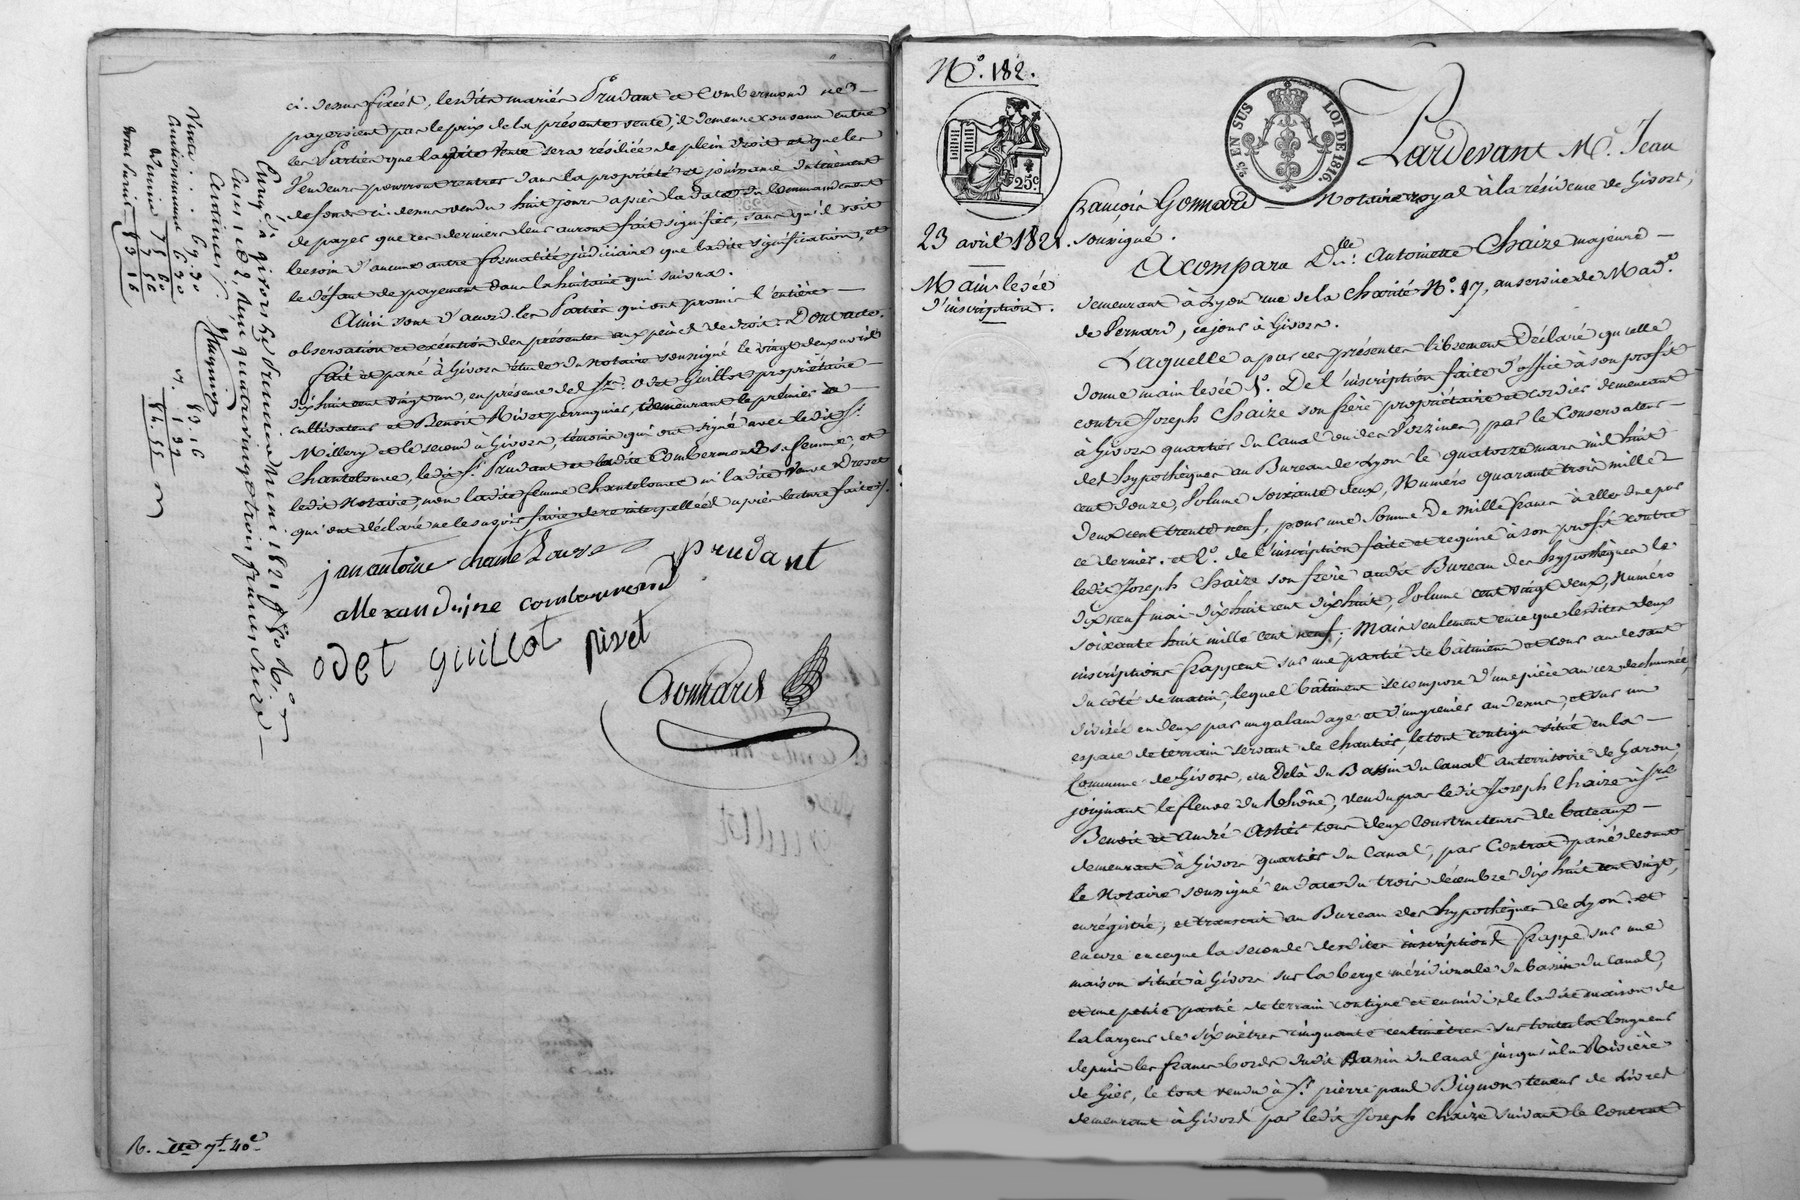 ci-dessus fixées, lesdits mariés Prudant et Combermond ne
payeroient pas le prix de la présente vente, il demeure convenu entre
les Parties que ladite Vente sera résiliée de plein droit et que les
Vendeurs pourront rentrer dans la propriété et jouissance du tènement
de fonds ci-dessus vendu huit jours après la date du Commandement
de payer que ces derniers leur auront fait signifier, sans qu'il soit
besoin d'aucune autre formalité judiciaire que ladite signification, et
le défaut de payement dans la huitaine qui suivra.
Ainsi sont d'accord les Parties qui ont promis l'entière
observation et exécution des présentes aux peines de droit. Dont acte.
fait et passé à Givors étude du notaire soussigné le vingt deux avril
dix huit cent vingt un, en présence des Srs. Odet Guillot propriétaire
cultivateur et Benoit Pivot perruquier, demeurant le premier à
Millery et le second à Givors, témoins qui ont signé avec ledit Sr.
Chantelouve, ledit Sr. Prudant et ladite Combermond sa femme, et
ledit Notaire, non ladite femme Chantelouve ni ladite Veuve
qui ont déclaré ne le savoir faire de ce interpellées après lecture faite.
jan antoine chante Louve prudant
allexandrine combermond
odet guillot pivot
Gonnard
Enreg. à givors le premier mai 1821 fo 80 Ro.
Cases 1 et 2, reçu quatre vingt trois francs seize
centimes
Vente
Cautionnement
75 60
7 56
83 16
83 16
1 39
84 55
No. 182.
25c
23 avril 1821.
Main levée
d'inscription.
3/10 EN SUS
LOI DE 1816.
Pardevant Me. Jean
françois Gonnard Notaire royal à la résidence de Givors,
soussigné.
A comparu Dlle. Antoinette Chaize majeure
demeurant à Lyon rue de la Charité No. 17, au service de Made.
de Fernard, ce jour à Givors.
Laquelle a par ces présentes librement Déclaré qu'elle
donne main levée 1o. De l'inscription faite d'office à son profit
contre Joseph Chaize son frère propriétaire et cordier demeurant
à Givors quartier du Canal ou des Verriers, par le Conservateur
des hypothèques au Bureau de Lyon le quatorze mars mil huit
cent douze, Volume soixante deux, Numéro quarante trois mille
deux cent trente neuf, pour une Somme De mille francs à elle due par
ce dernier. et 2o. de l'inscription faite et requise à son profit contre
ledit Joseph Chaize son frère audit Bureau des hypothèques le
dix neuf mai dix huit cent dix huit, Volume cent vingt deux, Numéro
soixante huit mille cent neuf; Mais seulement en ce que lesdites deux
inscriptions frappent sur une partie de bâtiment et cour au devant
du côté de matin, lequel bâtiment se compose d'une pièce au rez de chaussée,
divisée en deux par un galandage et d'un grenier au dessus, et sur un
espace de terrain servant de chantier, le tout contigu situé en la
Commune de Givors, au Delà du Bassin du Canal au territoire de Garon,
joignant le fleuve du Rhône, vendu par ledit Joseph Chaize à Srs.
Benoit et André Astier tous deux Constructeurs de bateaux
demeurant à Givors quartier du Canal, par Contrat passé devant
le Notaire soussigné en date du trois décembre dix huit cent vingt,
enrégistré, et transcrit au Bureau des hypothèques de Lyon. et
encore en ce que la seconde desdites inscriptions frappe sur une
maison située à Givors sur la berge méridionale du bassin du canal,
et une petite partie de terrain contigue et en midi de ladite maison de
la largeur de six mètres cinquante centimètres sur toute la longueur
depuis les francs bords dudit Bassin du Canal jusqu'à la Rivière
de Gier, le tout vendu à Sr. pierre paul Bignon teneur de Livres
demeurant à Givors par ledit Joseph Chaize suivant le Contrat